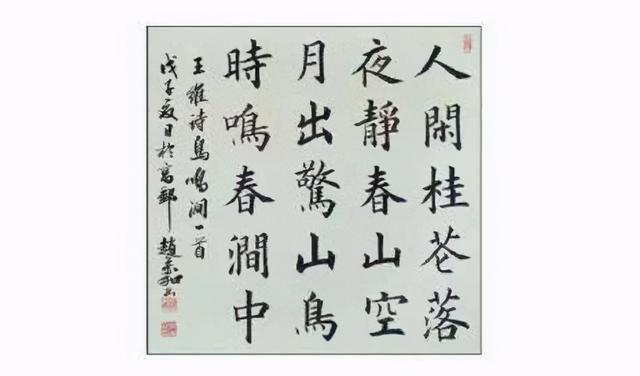 人閑桂花落
夜靜春山空
月出驚山鳥
時鳴春澗中
王維诗鳥鳴涧一首
戊子夏日於高郵 趙